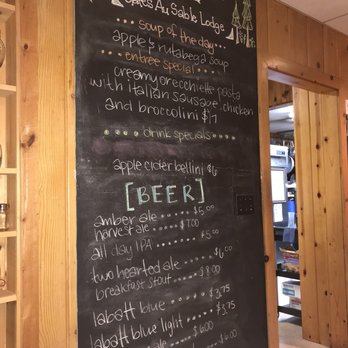 Gates Au Sable Lodge
soup of the day
apple & rutabega soup
entree special
creamy orecchiette pasta
with italian sausage, chicken
and broccolini $17
drink specials
apple cider bellini $6
[BEER]
amber ale $5.00
harvest ale $7.00
all day IPA $5.00
two hearted ale $6.00
breakfast stout $8.00
labatt blue $3.75
labatt blue light $3.75
ale $6.00